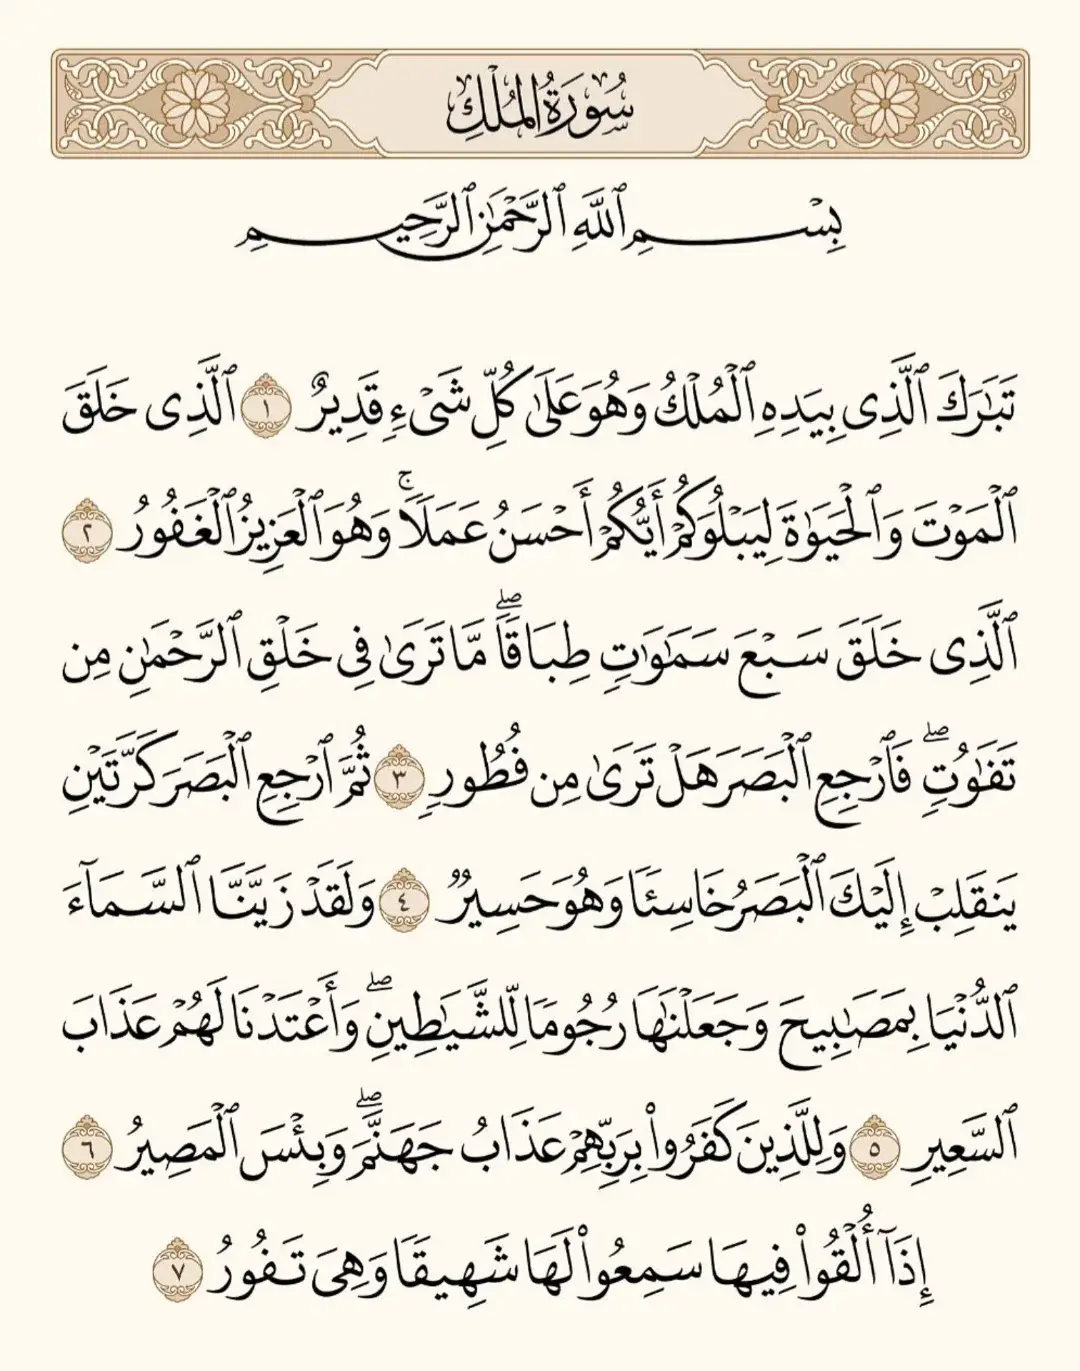 سُورَةُ الْمُلْكِ
بِسْمِ ٱللَّهِ ٱلرَّحْمَٰنِ ٱلرَّحِيمِ
تَبَٰرَكَ ٱلَّذِى بِيَدِهِ ٱلْمُلْكُ وَهُوَ عَلَىٰ كُلِّ شَىْءٍ قَدِيرٌ ١ ٱلَّذِى خَلَقَ
ٱلْمَوْتَ وَٱلْحَيَوٰةَ لِيَبْلُوَكُمْ أَيُّكُمْ أَحْسَنُ عَمَلًا ۚ وَهُوَ ٱلْعَزِيزُ ٱلْغَفُورُ ٢
ٱلَّذِى خَلَقَ سَبْعَ سَمَٰوَٰتٍ طِبَاقًا ۖ مَّا تَرَىٰ فِى خَلْقِ ٱلرَّحْمَٰنِ مِن
تَفَٰوُتٍ ۖ فَٱرْجِعِ ٱلْبَصَرَ هَلْ تَرَىٰ مِن فُطُورٍ ٣ ثُمَّ ٱرْجِعِ ٱلْبَصَرَ كَرَّتَيْنِ
يَنقَلِبْ إِلَيْكَ ٱلْبَصَرُ خَاسِئًا وَهُوَ حَسِيرٌ ٤ وَلَقَدْ زَيَّنَّا ٱلسَّمَآءَ
ٱلدُّنْيَا بِمَصَٰبِيحَ وَجَعَلْنَٰهَا رُجُومًا لِّلشَّيَٰطِينِ ۖ وَأَعْتَدْنَا لَهُمْ عَذَابَ
ٱلسَّعِيرِ ٥ وَلِلَّذِينَ كَفَرُوا۟ بِرَبِّهِمْ عَذَابُ جَهَنَّمَ ۖ وَبِئْسَ ٱلْمَصِيرُ ٦
إِذَآ أُلْقُوا۟ فِيهَا سَمِعُوا۟ لَهَا شَهِيقًا وَهِىَ تَفُورُ ٧